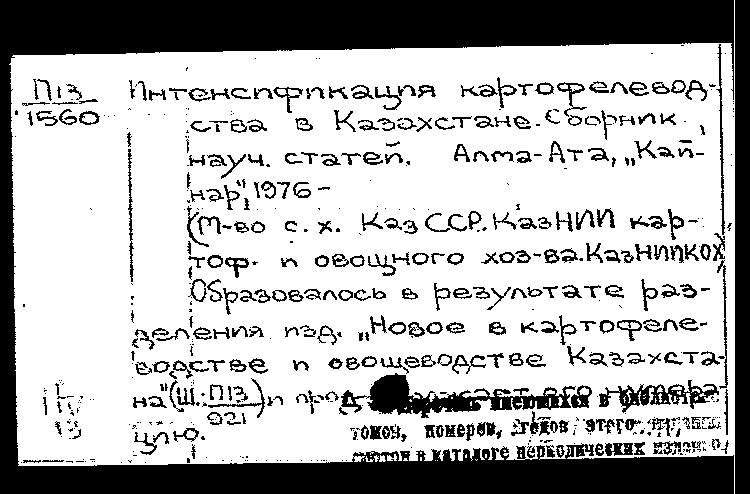 П13
1560
Интенсификация картофелевод-
ства в Казахстане. Сборник
науч. статей. Алма-Ата, „Кай-
нар", 1976 -
(М-во с. х. Каз ССР. КазНИИ кар-
тоф. и овощного хоз-ва. КазНИИКОХ)
Образовалось в результате раз-
деления изд. „Новое в картофеле-
водстве и овощеводстве Казахста-
на" (Ш: П13
921) и его нумера-
цию.
имеющихся в библиотеке
томов, номеров, годов этого
в каталоге периодических